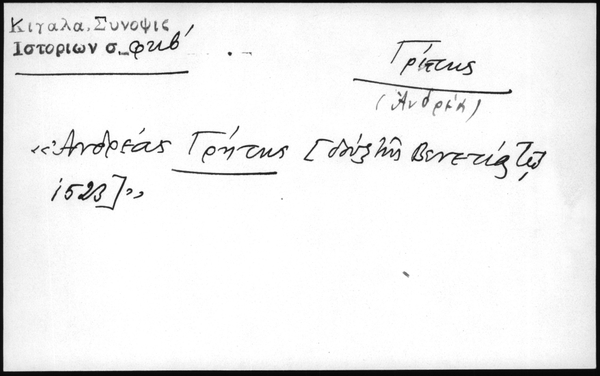 Κιγαλα, Συνοψις
Ιστοριων σ. φκβ'
Γρίτης
(Ἀνδρέα)
«Ἀνδρέας Γρήτης [δοὺξ τῆς Βενετίας τῷ
1523]»